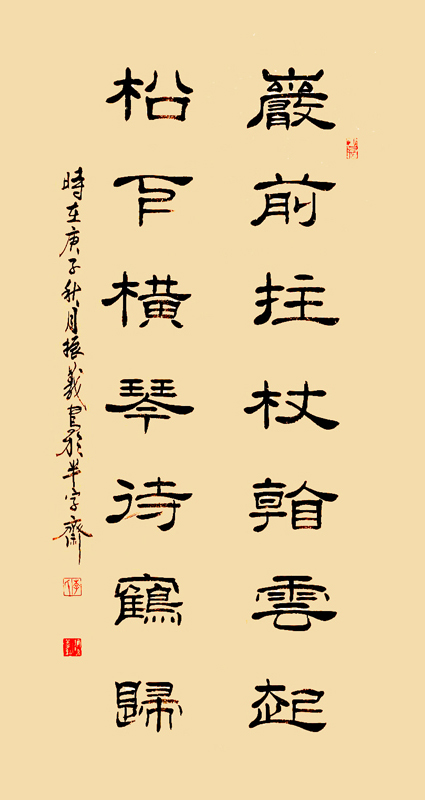 巖前拄杖看雲起
松下橫琴待鶴歸
時在庚子秋月振義書於半字齋